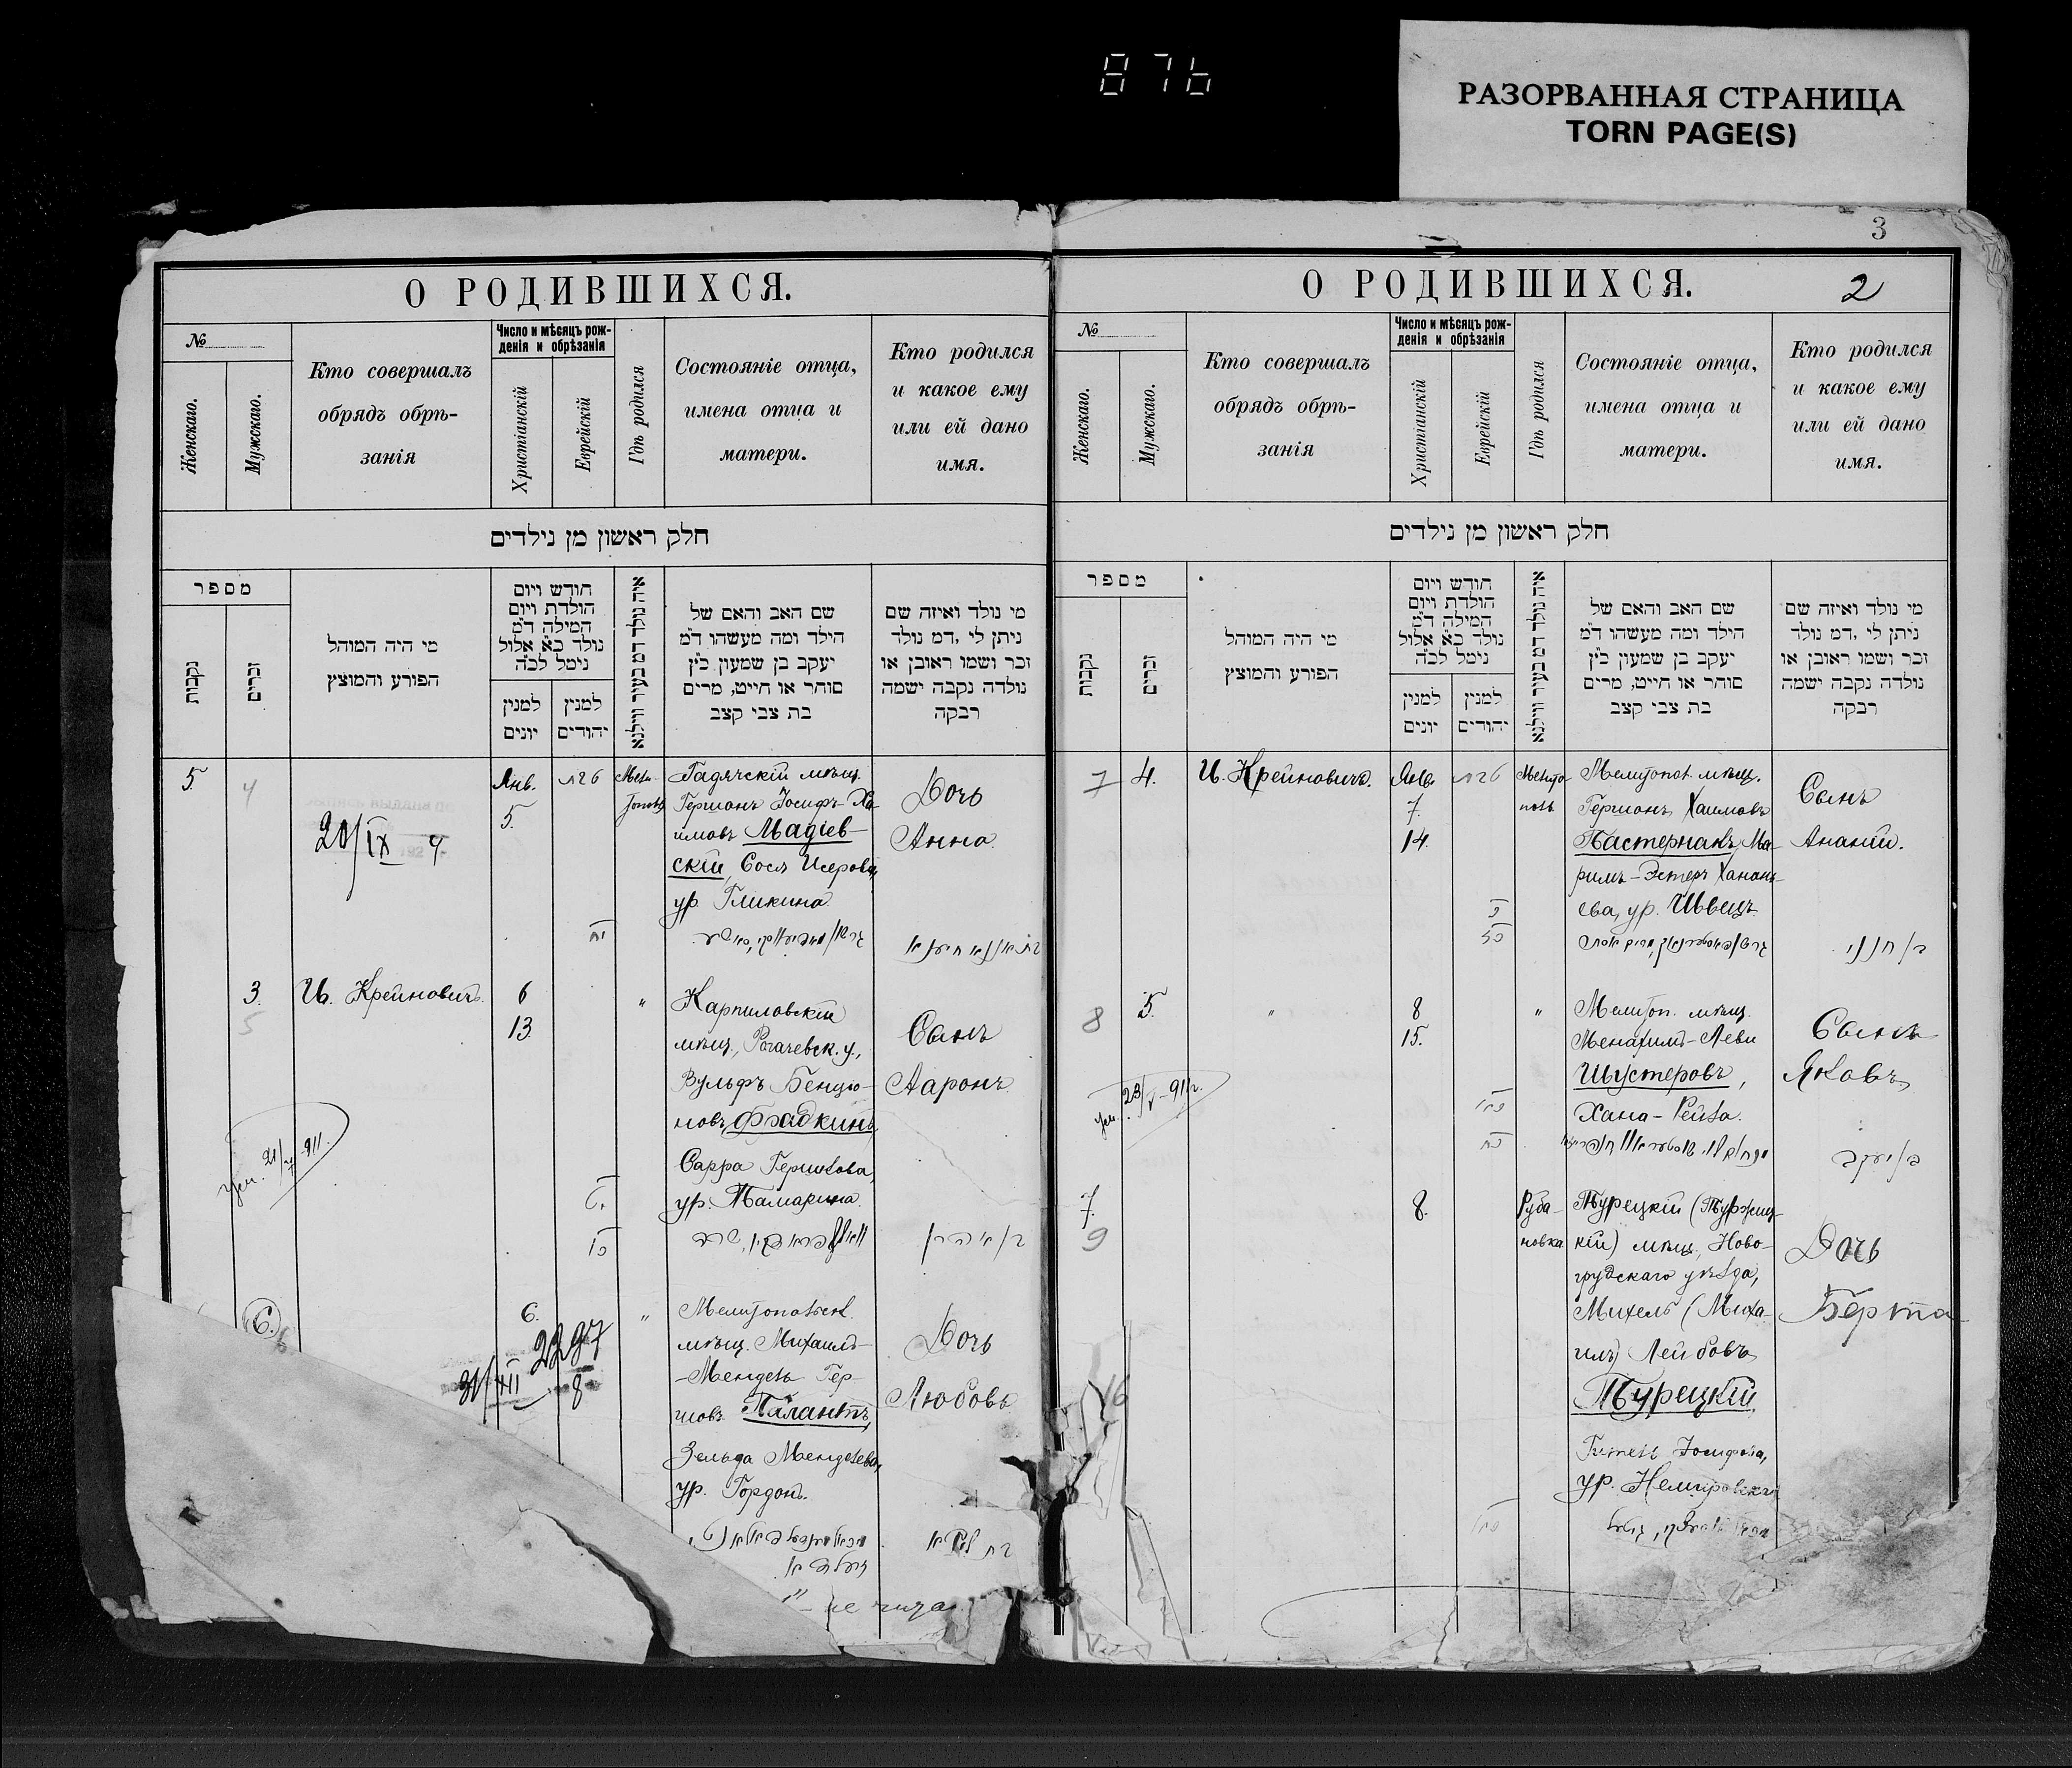 876
РАЗОРВАННАЯ СТРАНИЦА
TORN PAGE(S)
О РОДИВШИХСЯ.
№
Женскаго.
Мужскаго.
Кто совершалъ
обрядъ обрѣ-
занія
Число и мѣсяцъ рож-
денія и обрѣзанія
Христіанскій
Еврейскій
Гдѣ родился
Состояніе отца,
имена отца и
матери.
Кто родился
и какое ему
или ей дано
имя.
חלק ראשון מן נילדים
מספר
נקבות
זכרים
מי היה המוהל
הפורע והמוצץ
חודש ויום
הולדת ויום
המילה ד״מ
נולד כ״א אלול
נימל לכ״ה
למנין
יונים
למנין
יהודים
איה נולד דמ בעיר ווילנא
שם האב והאם של
הילד ומה מעשהו ד״מ
יעקב בן שמעון כ״ץ
סוחר או חייט, מרים
בת צבי קצב
מי נולד ואיזה שם
ניתן לי ,דמ נולד
זכר ושמו ראובן או
נולדה נקבה ישמה
רבקה
5.
4
20/IX
Янв.
5.
טבת
Мели-
тополь
Гадячскій мѣщ.
Гершонъ Іосифъ Ха-
имовъ Мадіев-
скій, Сося Исерова,
ур. Гликина
Дочь
Анна
יח
3.
5
И. Крейновичъ.
6
13.
"
Карпиловскій
мѣщ., Рогачевск. у.,
Вульфъ Бенціо-
новъ Фрадкинъ,
Сарра Гершкова,
ур. Тамаркина.
Сынъ
Ааронъ
21/V-911.
6.
6
6.
"
2297
31/XII 8
Мелитопольск.
мѣщ. Михаилъ-
-Мендель Гер-
шовъ Палантъ,
Зельда Менделева,
ур. Гордонъ.
Дочь
Любовь
О РОДИВШИХСЯ.
3
2
№
Женскаго.
Мужскаго.
Кто совершалъ
обрядъ обрѣ-
занія
Число и мѣсяцъ рож-
денія и обрѣзанія
Христіанскій
Еврейскій
Гдѣ родился
Состояніе отца,
имена отца и
матери.
Кто родился
и какое ему
или ей дано
имя.
חלק ראשון מן נילדים
מספר
נקבות
זכרים
מי היה המוהל
הפורע והמוצץ
חודש ויום
הולדת ויום
המילה ד״מ
נולד כ״א אלול
נימל לכ״ה
למנין
יונים
למנין
יהודים
איה נולד דמ בעיר ווילנא
שם האב והאם של
הילד ומה מעשהו ד״מ
יעקב בן שמעון כ״ץ
סוחר או חייט, מרים
בת צבי קצב
מי נולד ואיזה שם
ניתן לי ,דמ נולד
זכר ושמו ראובן או
נולדה נקבה ישמה
רבקה
7
4.
И. Крейновичъ.
Янв.
7.
14.
טבת
Мелито-
поль
Мелитопол. мѣщ.
Гершонъ Хаимовъ
Пастернакъ, Ма-
римъ-Эстеръ Ханань-
ева, ур. Швецъ
Сынъ
Ананій.
חנני
8
5.
"
8
15.
"
Мелитоп. мѣщ.
Менахимъ-Леви
Шустеровъ,
Хана-Рейза.
Сынъ
Яковъ
יעקב
23/V-911г.
7.
9
8.
Руба-
новка
Турецкій (Туржец-
кій) мѣщ. Ново-
грудскаго уѣзда,
Михель (Миха-
илъ) Лейбовъ
Турецкій,
Гитель Іосифова,
ур. Немировска
Дочь
Берта